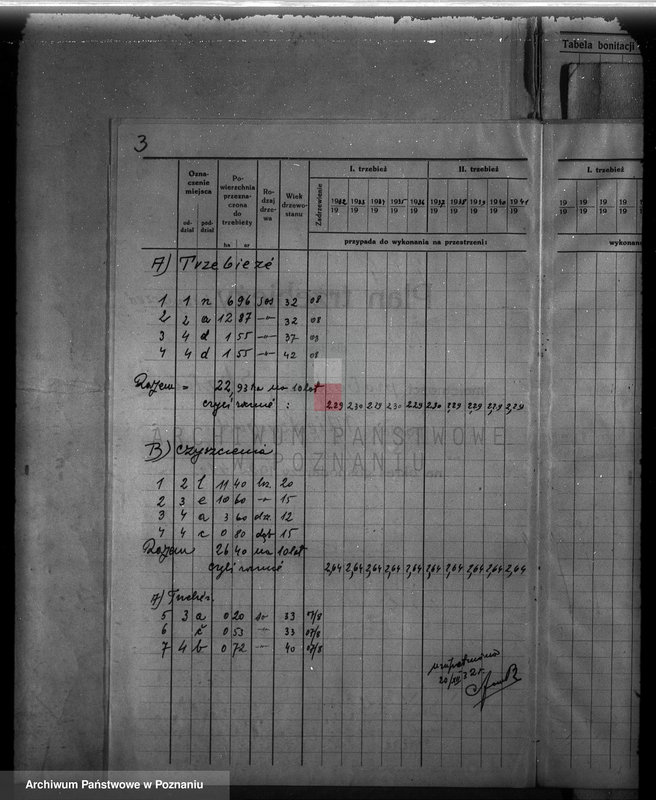 Tabela bonitacji
3
Ozna-
czenie
miejsca
od-
dział
pod-
dział
Po-
wierzchnia
przezna-
czona
do
trzebieży
ha ar
Ro-
dzaj
drze-
wa
Wiek
drzewo-
stanu
Zadrzewienie
I. trzebież II. trzebież
1932 1933 1934 1935 1936 1937 1938 1939 1940 1941
19 19 19 19 19 19 19 19 19 19
przypada do wykonania na przestrzeni:
I. trzebież
19 19 19 19
19 19 19 19
wykonano
A) Trzebieże
1 1 n 6 96 sos 32 08
2 2 a 12 87 -"- 32 08
3 4 d 1 55 -"- 37 08
4 4 d 1 55 -"- 42 08
Razem = 22,93 ha na 10 lat
czyli rocznie : 2.29 2.30 2.29 2.30 2.29 2.30 2.29 2.29 2.29 2.29
ARCHIWUM PAŃSTWOWE
W POZNANIU
B) Czyszczenia
1 2 l 11 40 brz. 20
2 3 e 10 60 -"- 15
3 4 a 3 60 dz. 12
4 4 c 0 80 dąb 15
Razem 26 40 na 10 lat
czyli rocznie 2,64 2,64 2,64 2,64 2,64 2,64 2,64 2,64 2,64 2,64
A) Trzebież.
5 3 a 0 20 so 33 07/8
6 č 0 53 -"- 33 07/8
7 4 b 0 72 -"- 40 07/8
20/III 32 r.
Archiwum Państwowe w Poznaniu